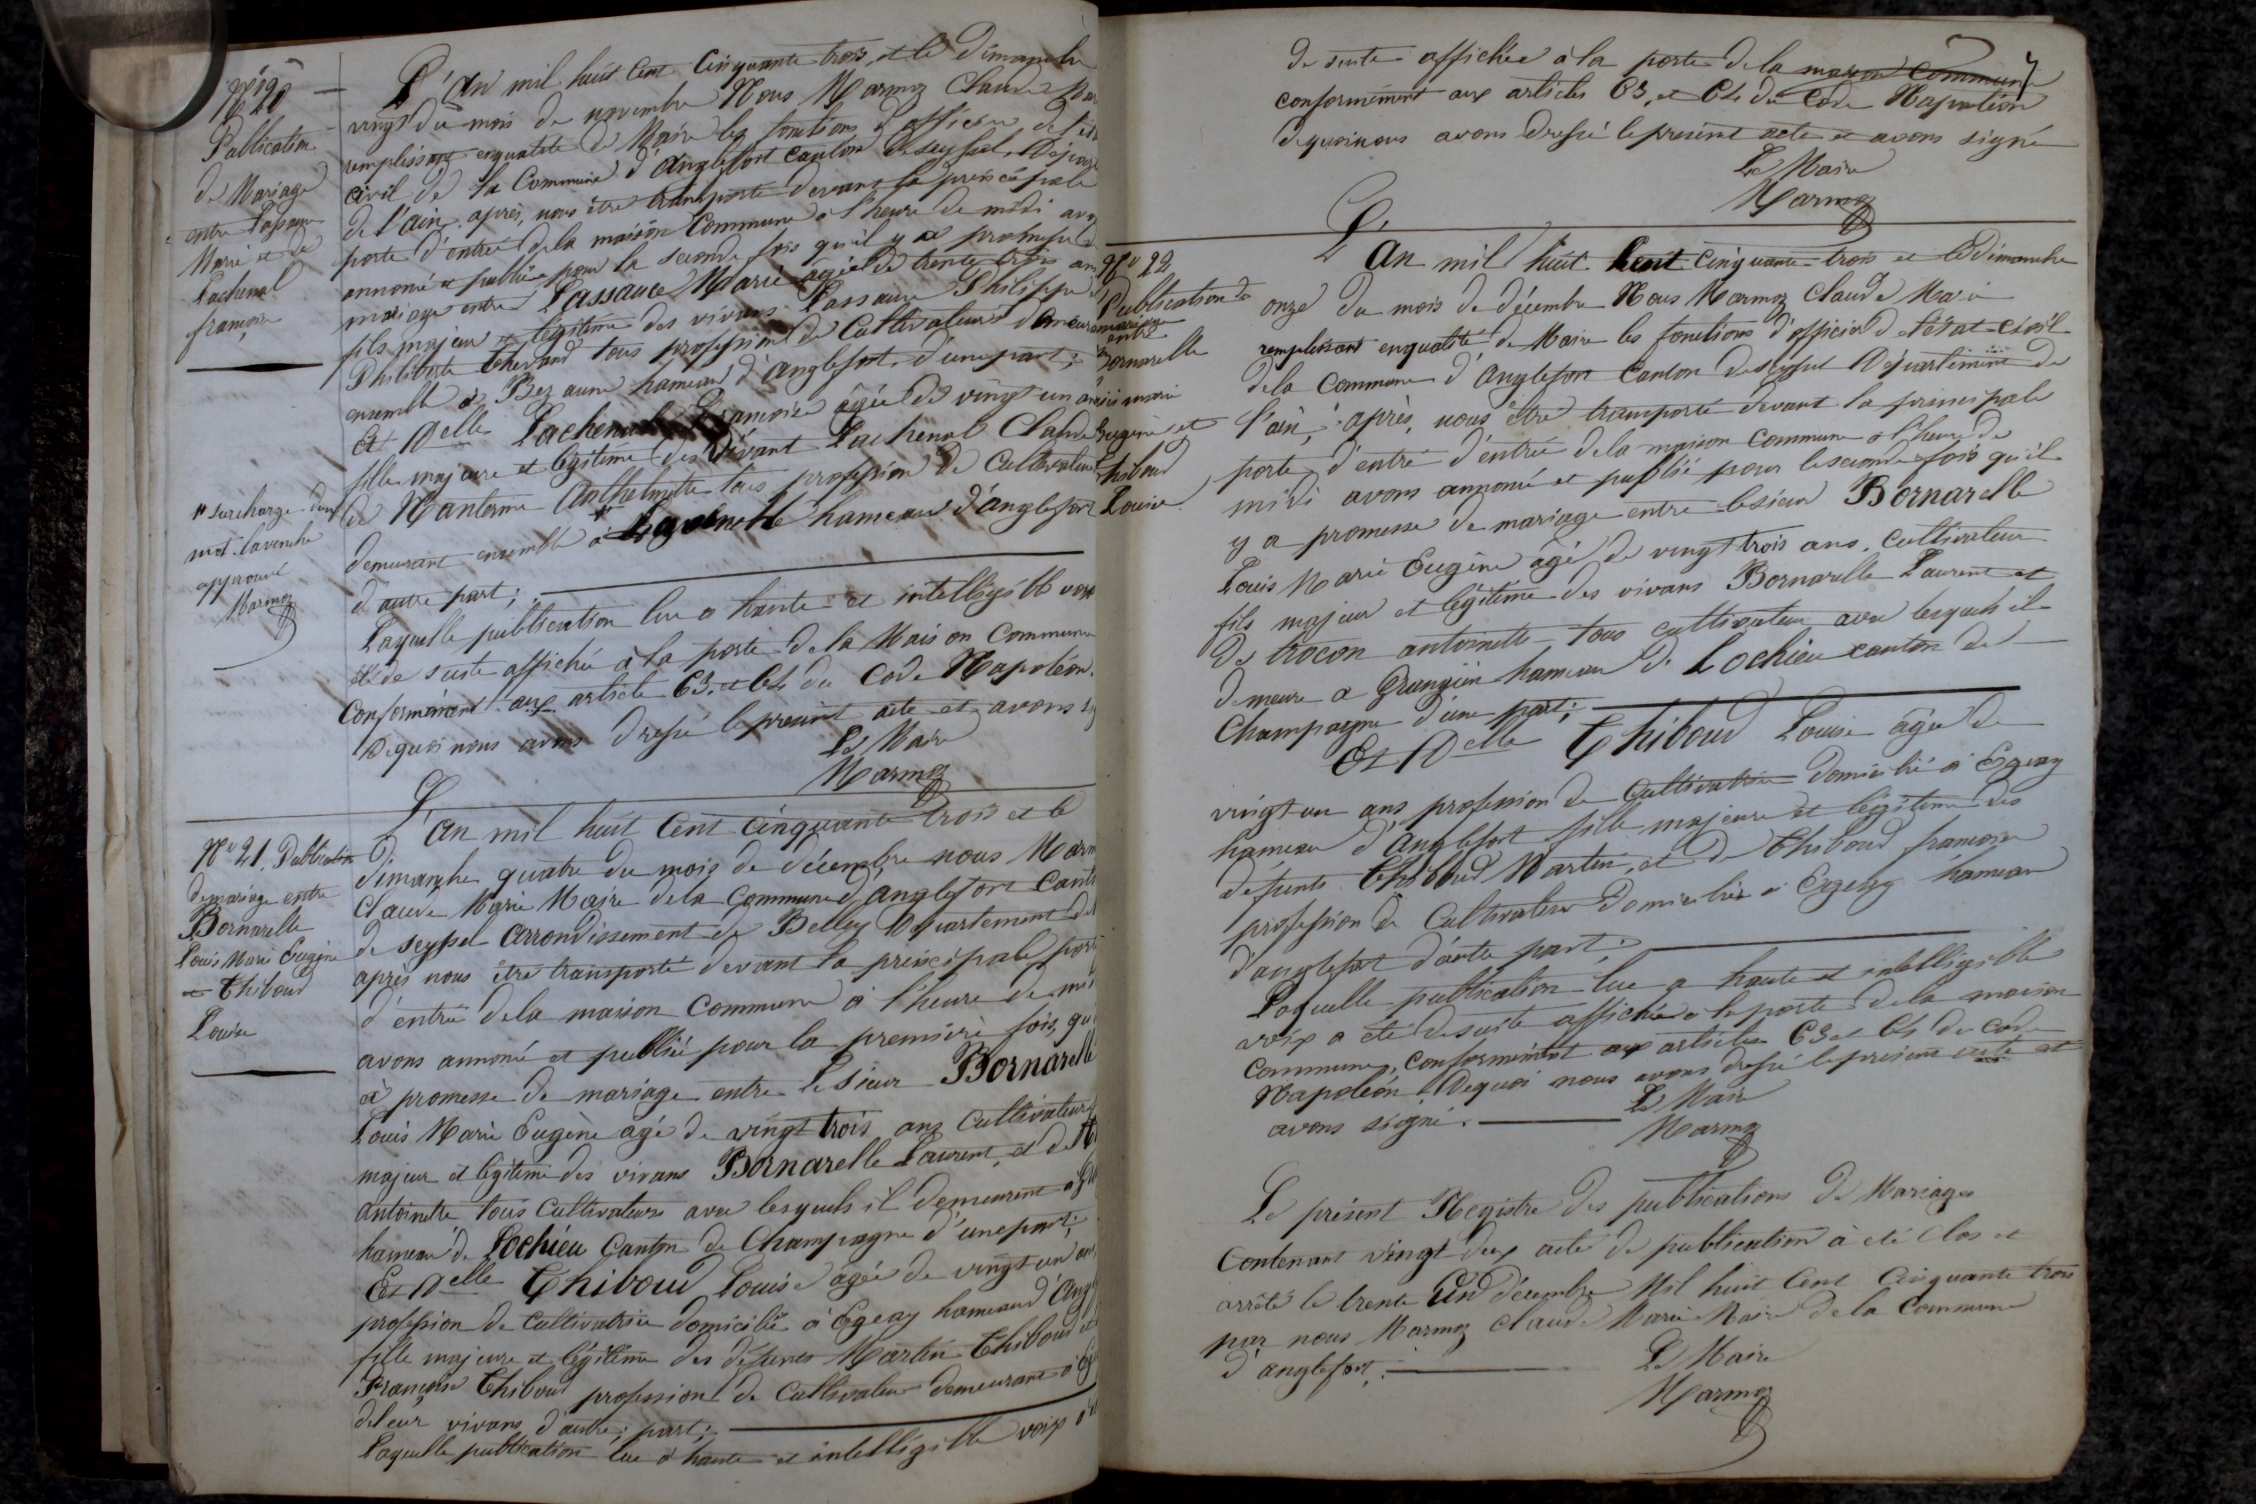 N° 20
Publication
de Mariage
entre Passaure
Marie et de
Lachenal
françoise
L'an mil huit Cent Cinquante trois, et le Dimanche
vingt du mois de novembre Nous Marmoz Claude Mar
remplissant enqualité de Maire les fonctions d'officier de l'éta
civil de la Commune d'anglefort canton deseyssel, Départe
de l'ain. après, nous être transporté devant la principale
porte d'entrée de la maison Commune à l'heure de midi avo
annoncé et publiée pour la seconde fois qu'il y a promesse de
mariage entre Passaure Marie âgée de trente trois ans
fils majeur et légitime des vivans Passaure Philippe et
Philiberte Chevand tous profession de Cultivateurs demeurant
ensemble à Bezaune hameau d'anglefort d'une part;
Et Delle Lachenal françoise âgée de vingt un ans
fille majeure et légitime des vivant Lachenal Claude
de Nanterme Anthelmette tous profession de Cultivateur
demeurant ensemble à hameau d'anglefort
d'autre part;
surcharge du
mot lavenche
approuvé
Marmoz
Laquelle publication lue a haute et intelligible voix
été de suite affichée à la porte de la Maison Commune
Conformément aux article 63. et 64 du Code Napoléon.
Dequoi nous avons dressé le present acte et avons si
Le Maire
Marmoz
N° 21. Publication
demariage entre
Bornarelle
Louis Marie Eugène
et Thiboud
Louise
L'an mil huit Cent Cinquante trois et le
dimanche quatre du mois de décembre nous Marm
Claude Marie Maire dela Commune d'anglefort Cant
de seyssel arrondissement de Belley Département de
après nous être transporté devant la principale port
d'entrée dela maison Commune à l'heure de mi
avons annoncé et publiée pour la premiere fois, qu
a promesse de mariage entre le sieur Bornarelle
Louis Marie Eugène agé de vingt trois ans cultivateur
majeur et légitime des vivans Bornarelle Laurent, et de
antoinette tous Cultivateurs avec lesquels il demeurent à
hameau de Lochieu Canton de Champagne d'une part;
Et Delle Thiboud Louise agée de vingt un ans
profession de cultivatrice domiciliée à Egeay hameau d'Ang
fille majeure et légitime des défunts Martin Thiboud et
Françoise Thiboud profession de cultivateur demeurant à
deleur vivans d'autre; part;
Laquelle publication lue à haute et intelligible voix a
de suite affichée à la porte de la maison Commune
7
conformément aux articles 63, et 64 du Code Napoléon
dequoinous avons dressé le present acte et avons signé
Le Maire
Marmoz
N° 22
Publication de
mariage
entre
Bornarelle
Louis marie
Eugène et
Thiboud
Louise
L'an mil huit Cent Cinquante trois et le Dimanche
onze du mois de décembre Nous Marmoz Claude Marie
remplissant enqualité de Maire les fonctions d'officier de l'état civil
dela Commune d'anglefort Canton deseyssel Département de
l'ain, après, nous être transporté devant la principale
porte d'entré d'entrée dela maison commune à l'heure de
midi avons annoncé et publié pour laseconde fois qu'il
y a promesse de mariage entre lesieur Bornarelle
Louis Marie Eugène agé de vingt trois ans. cultivateur
fils majeur et légitime des vivans Bornarelle Laurent et
De trocon antoinette tous cultivateur avec lesquels il
demeure a hameau de Lochieu canton de
Champagne d'une part;
Et Delle Thiboud Louise agée de
vingt un ans profession de Cultivatrice domiciliée à Egeay
hameau d'anglefort fille majeure et légitime des
défunts Thiboud Martin, et de Thiboud françoise
profession de Cultivateur domiciliés à Egeay hameau
d'anglefort d'autre part;
Laquelle publication lue a haute et intelligible
voix a été desuite affichée a la porte dela maison
commune, conformément aux articles 63 et 64 du code
Napoléon. Dequoi nous avons dressé le présent acte et
avons signé.
Le Maire
Marmoz
Le présent Registre des publications de Mariages
Contenant vingt deux acte de publication à été Clos et
arrêté le trente Un décembre Mil huit Cent Cinquante trois
par nous Marmoz Claude Marie Maire dela Commune
d'anglefort.
Le Maire
Marmoz